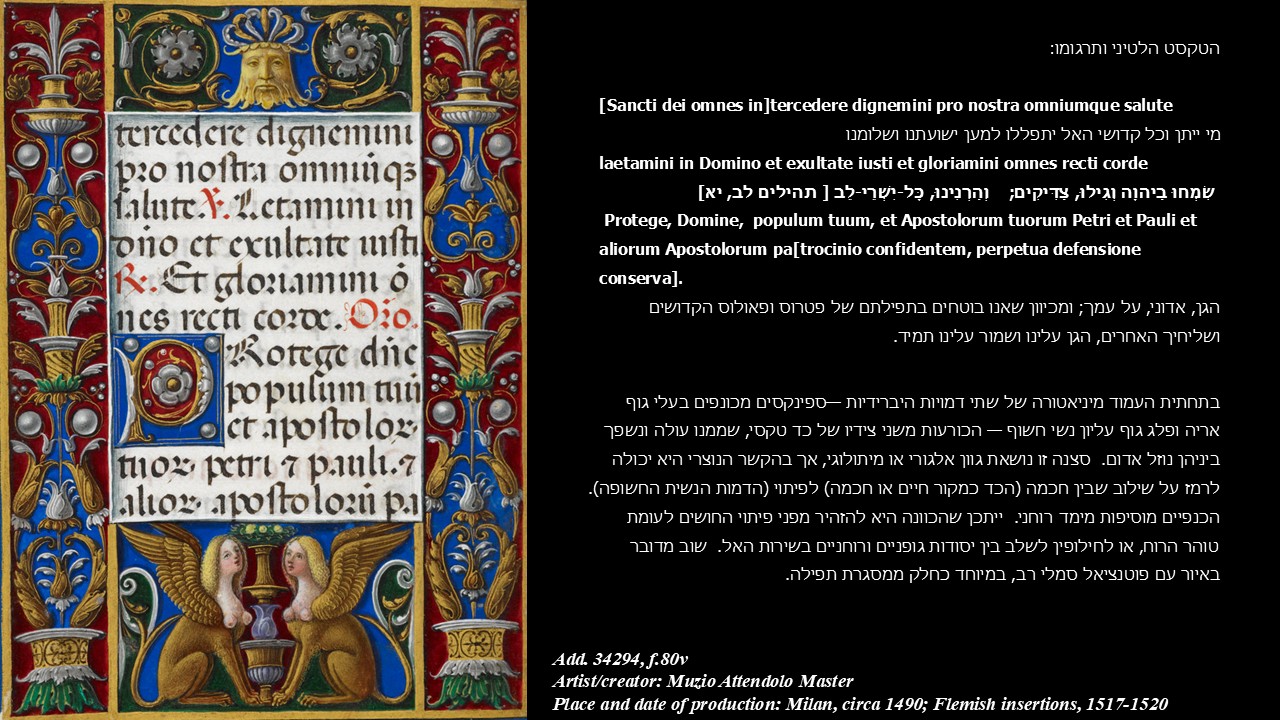 tercedere dignemini
pro nostra omniūqȝ
salute. ℣. Letamini in
dño et exultate iusti
℟. Et gloriamini ō
nes recti corde. Oro.
PRotege dñe
populum tuū
et apostolor
tuor petri ⁊ pauli. ⁊
alior apostolorū pa
הטקסט הלטיני ותרגומו:
[Sancti dei omnes in]tercedere dignemini pro nostra omniumque salute
מי ייתן וכל קדושי האל יתפללו למען ישועתנו ושלומנו
laetamini in Domino et exultate iusti et gloriamini omnes recti corde
שִׂמְחוּ בַיהוָה וְגִילוּ, צַדִּיקִים; וְהַרְנִינוּ, כָּל-יִשְׁרֵי-לֵב [ תהילים לב, יא]
Protege, Domine, populum tuum, et Apostolorum tuorum Petri et Pauli et
aliorum Apostolorum pa[trocinio confidentem, perpetua defensione
conserva].
הגן, אדוני, על עמך; ומכיוון שאנו בוטחים בתפילתם של פטרוס ופאולוס הקדושים
ושליחיך האחרים, הגן עלינו ושמור עלינו תמיד.
בתחתית העמוד מיניאטורה של שתי דמויות היברידיות —ספינקסים מכונפים בעלי גוף
אריה ופלג גוף עליון נשי חשוף — הכורעות משני צידיו של כד טקסי, שממנו עולה ונשפך
ביניהן נוזל אדום. סצנה זו נושאת גוון אלגורי או מיתולוגי, אך בהקשר הנוצרי היא יכולה
לרמז על שילוב שבין חכמה (הכד כמקור חיים או חכמה) לפיתוי (הדמות הנשית החשופה).
הכנפיים מוסיפות מימד רוחני. ייתכן שהכוונה היא להזהיר מפני פיתוי החושים לעומת
טוהר הרוח, או לחילופין לשלב בין יסודות גופניים ורוחניים בשירות האל. שוב מדובר
באיור עם פוטנציאל סמלי רב, במיוחד כחלק ממסגרת תפילה.
Add. 34294, f.80v
Artist/creator: Muzio Attendolo Master
Place and date of production: Milan, circa 1490; Flemish insertions, 1517-1520